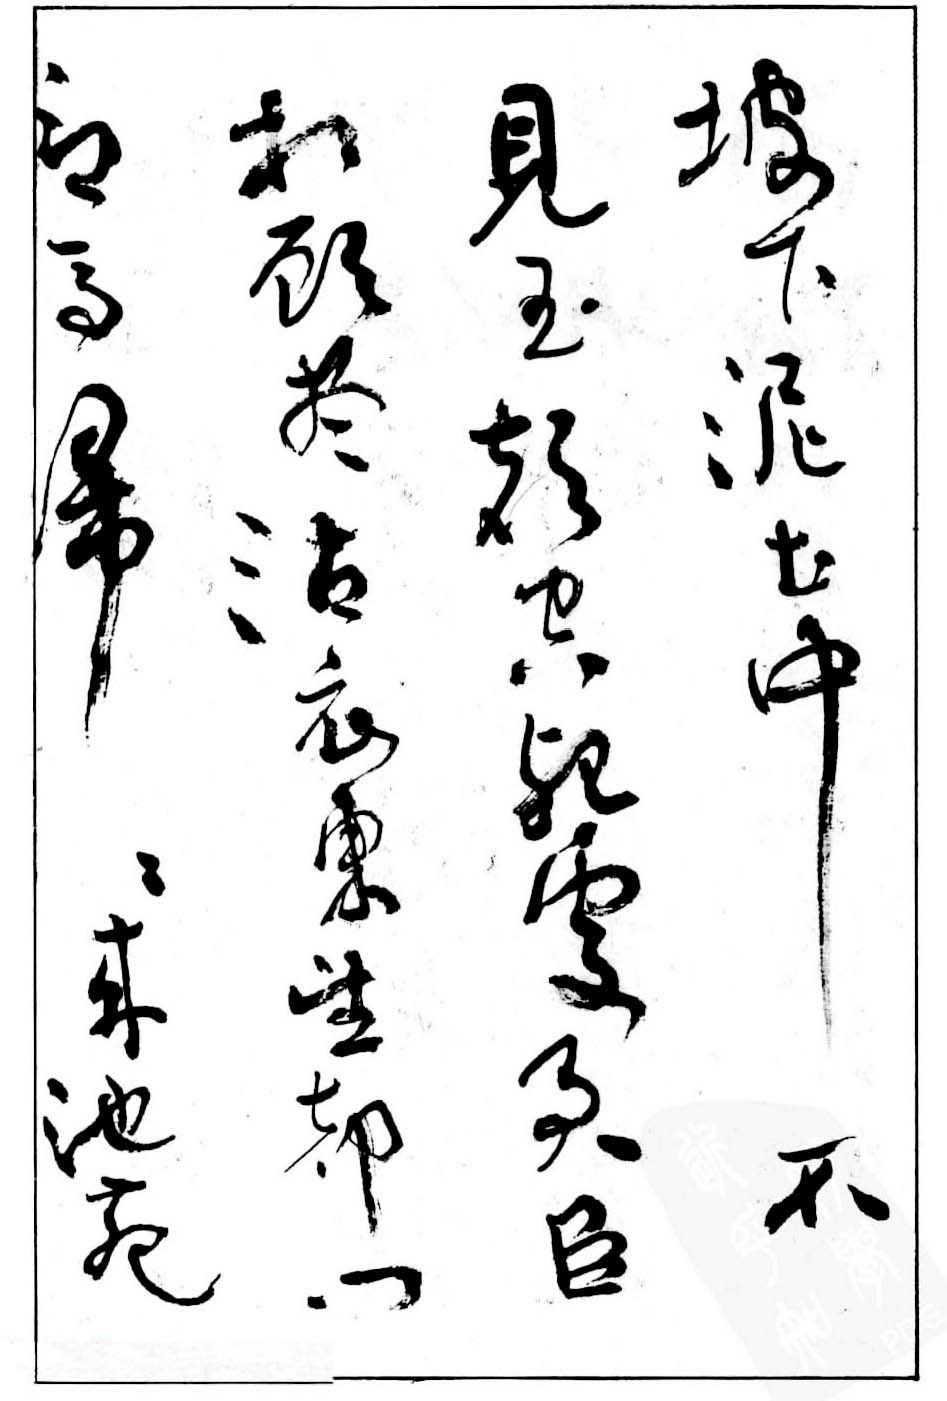 坡下泥土中不
見玉顏空死處君臣
相顧盡沾衣東望都門
信馬歸歸來池苑